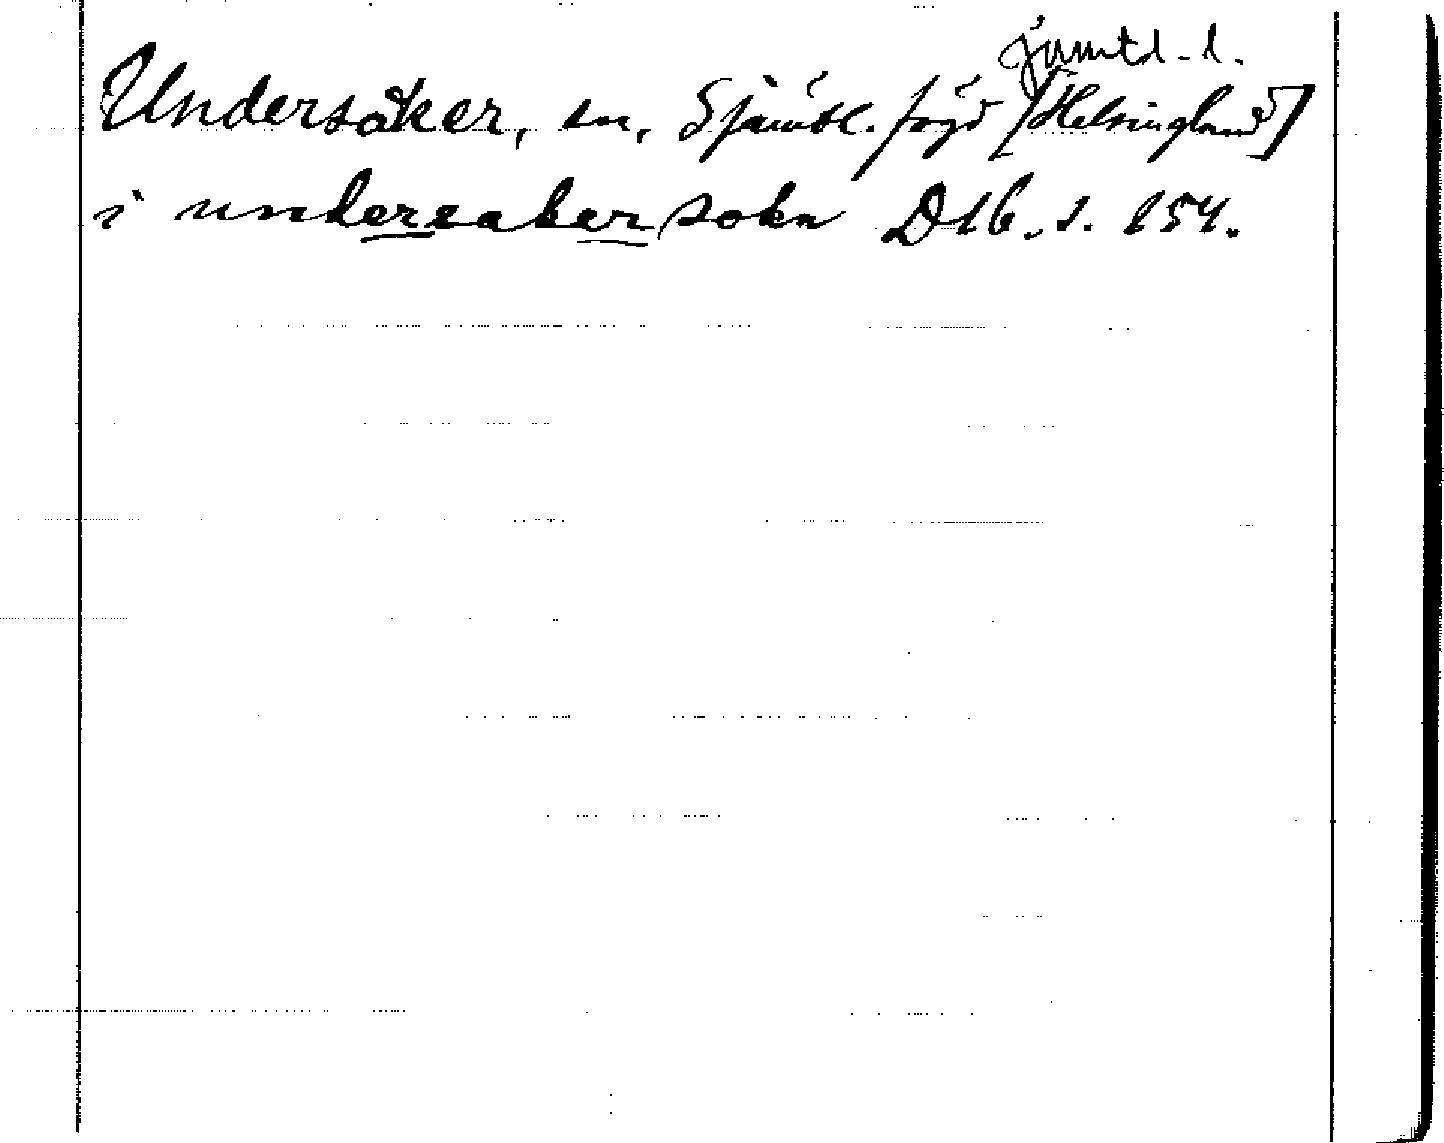 jämtl. l.
Undersåker, sn, S Jämtl. fögd [Helsingland]
i undersaker sokn D16. s. 154.